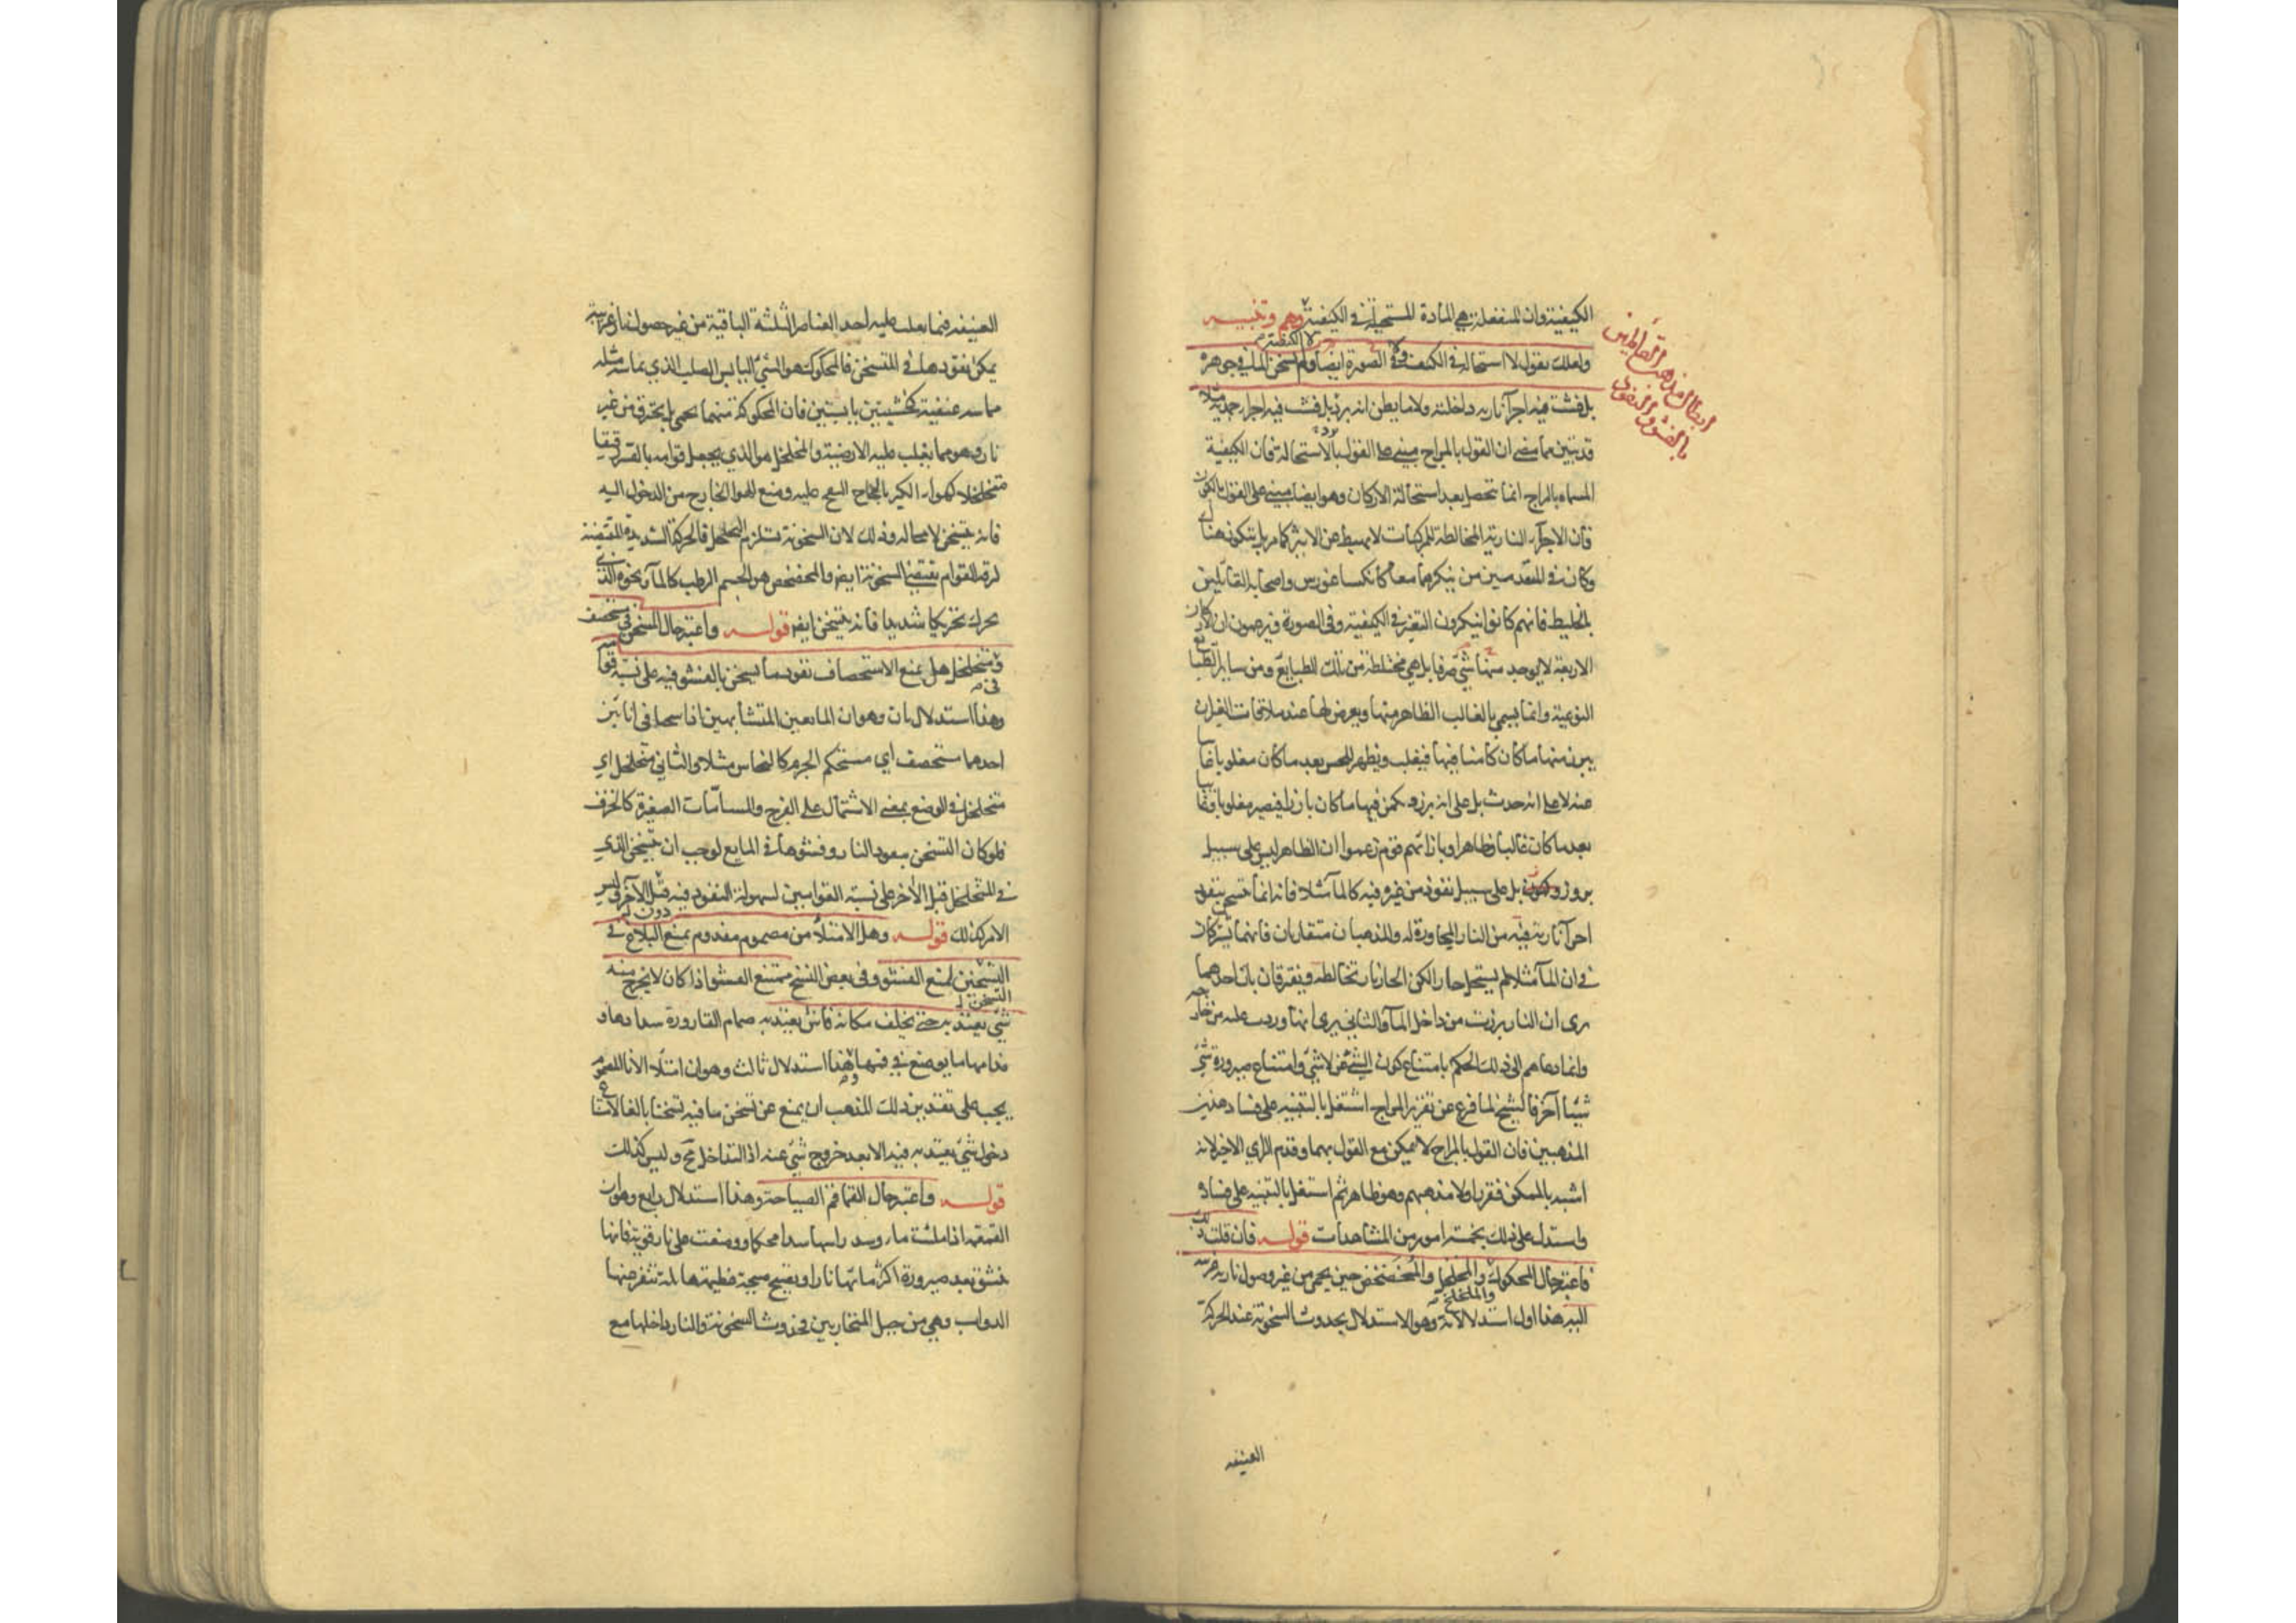 الكيفية وان المنفعلة هي المادة المستحيلة في الكيفية وهم وتنبيه
ولعلك تقول لا استحالة في الكيف ولا في الصورة ايضا ولم يسخن الماء في جوهره
بل فشت فيه اجزاء نارية داخلته ولا ما يظن انه برد بل فشت فيه اجزاء جمدية مثلا
قد تبين مما مضى ان القول بالمزاج مبني على القول بالاستحالة فان الكيفية
المسماة بالمزاج انما تحصل بعد استحالة الاركان وهو ايضا مبني على القول بالكون
فان الاجزاء النارية المخالطة للمركبات لا تهبط عن الاثير كما مر بل يتكون هنا
وكان في المتقدمين من ينكرهما معا كانكساغورس واصحابه القائلين
بالخليط فانهم كانوا ينكرون التغير في الكيفية وفي الصورة ويزعمون ان الاركان
الاربعة لا يوجد منها شيء صرفا بل هي مختلطة من تلك الطبايع ومن ساير الطبايع
النوعية وانما يسمى بالغالب الظاهر منها ويعرض لها عند ملاقات الغير ان
يبرز منها ما كان كامنا فيها فيغلب ويظهر للحس بعد ما كان مغلوبا غايبا
عنه لا على انه حدث بل على انه برز ويكمن فيها ما كان بارزا فيصير مغلوبا وغايبا
بعد ما كان غالبا وظاهرا وبازائهم قوم زعموا ان الظاهر ليس على سبيل
بروز وكمون بل على سبيل نفوذ من غيره فيه كالماء مثلا فانه انما يتسخن بنفوذ
اجزاء نارية فيه من النار المجاورة له والمذهبان متقاربان فانهما يشتركان
في ان الماء مثلا لم يستحل حارا لكن الحار نار تخالطه ويفترقان بان احدهما
يرى ان النار برزت من داخل الماء والثاني يرى انها وردت عليه من خارجه
وانما دعاهم الى ذلك الحكم بامتناع كون الشيء عن لا شيء وامتناع صيرورة شيء
شيئا آخر فالشيخ لما فرغ عن تقرير المزاج اشتغل بالتنبيه على فساد هذين
المذهبين فان القول بالمزاج لا يمكن مع القول بهما وقدم الراي الاخير لانه
اشبه بالممكن فقرر اولا مذهبهم وهو ظاهر ثم اشتغل بالتنبيه على فساده
واستدل على ذلك بخمسة امور من المشاهدات قوله فان قلت ذلك
فاعتبر حال المحكوك والمخلخل والمخضخض حين يحمى من غير وصول نارية غريبة
اليه هذا اول استدلالاته وهو الاستدلال بحدوث السخونة عند الحركة
العنيفة
ابطال مذهب القائلين
بالفشو والنفوذ
العنيفة فيما يغلب عليه احد العناصر الثلثة الباقية من غير حصول نار غريبة
يمكن نفوذها في المتسخن فالمحكوك هو الشيء اليابس الصلب الذي يماسه مثله
مماسة عنيفة كخشبتين يابستين فان المحكوكة منهما تحمى بل يحترق من غير
نار وهو مما يغلب عليه الارضية والمخلخل هو الذي يجعل قوامه بالقسر رقيقا
متخلخلا كهواء الكير بالحاح النفخ عليه ومنع الهواء الخارج من الدخول اليه
فانه يتسخن لا محالة وذلك لان السخونة تستلزم التخلخل فالحركة الشديدة المقتضية
لرقة القوام تقتضي السخونة ايضا والمخضخض هو الجسم الرطب كالماء ونحوه الذي
يحرك تحريكا شديدا فانه يتسخن ايضا قوله واعتبر حال المسخن في مستحصف
وفي متخلخل هل يمنع الاستحصاف نفوذ ما يسخن بالفشو فيه على نسبة قوامه
وهذا استدلال ثان وهو ان المايعين المتشابهين اذا سخنا في انائين
احدهما مستحصف اي مستحكم الجرم كالنحاس مثلا والثاني متخلخل اي
متخلخل في الوضع بمعنى الاشتمال على الفرج والمسامات الصغيرة كالخزف
فلو كان التسخن بنفوذ النار وفشوها في المايع لوجب ان يتسخن الذي
في المتخلخل قبل الآخر على نسبة القوامين لسهولة النفوذ فيه قبل الآخر وليس
الامر كذلك قوله وهل الامتلاء من مصموم مفدوم يمنع البلاغ في
التسخين لمنع الفشو وفي بعض النسخ يمتنع الفشو اذا كان لا يخرج منه
شيء يعتد به حتى يخلف مكانه فاش يعتد به صمام القارورة سدادها و
فدامها ما يوضع في فمها هذا استدلال ثالث وهو ان امتلاء الاناء المصموم
يجب على تقدير ذلك المذهب ان يمنع عن تسخن ما فيه تسخنا بالغا لامتناع
دخول شيء يعتد به فيه الا بعد خروج شيء عنه اذ التداخل مح وليس كذلك
قوله واعتبر حال القماقم الصياحة وهذا استدلال رابع وهو ان
القمقمة اذا ملئت ماء وسد راسها سدا محكما ووضعت على نار قوية فانها
تنشق بعد صيرورة اكثر مائها نارا ويصيح صيحة عظيمة هائلة تنفر منها
الدواب وهي من حيل المتحاربين فحدوث السخونة والنار داخلها مع